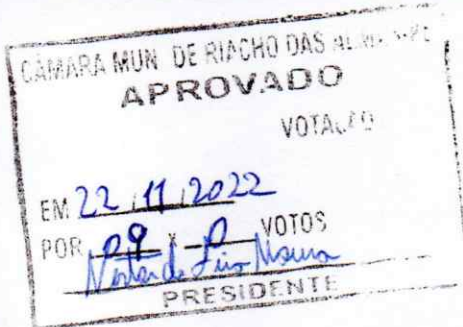 CÂMARA MUN. DE RIACHO DAS ALMAS-PE
APROVADO
VOTAÇÃO
EM 22/11/2022
POR 09 x 0 VOTOS
PRESIDENTE